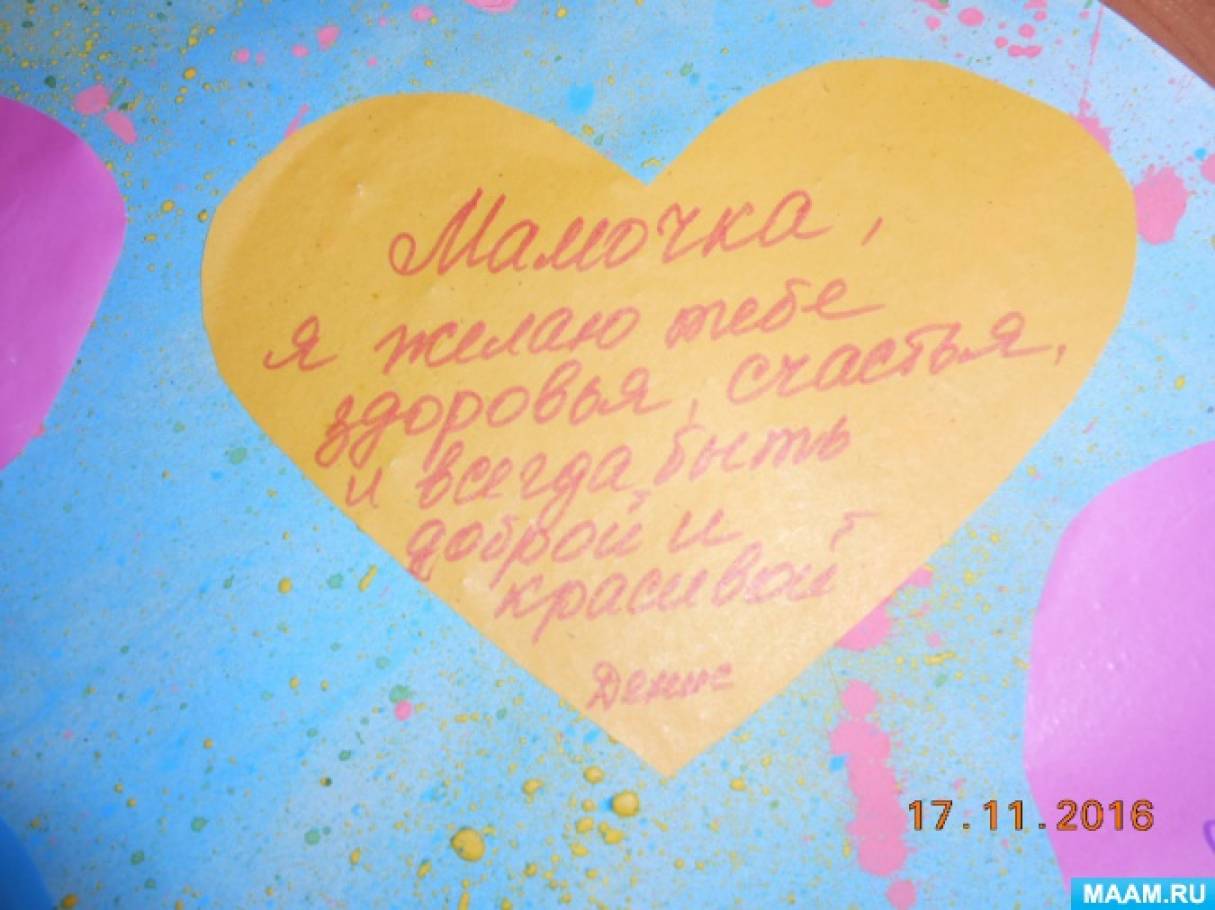 Мамочка,
я желаю тебе
здоровья, счастья,
и всегда быть
доброй и
красивой
Денис
17.11.2016
MAAM.RU